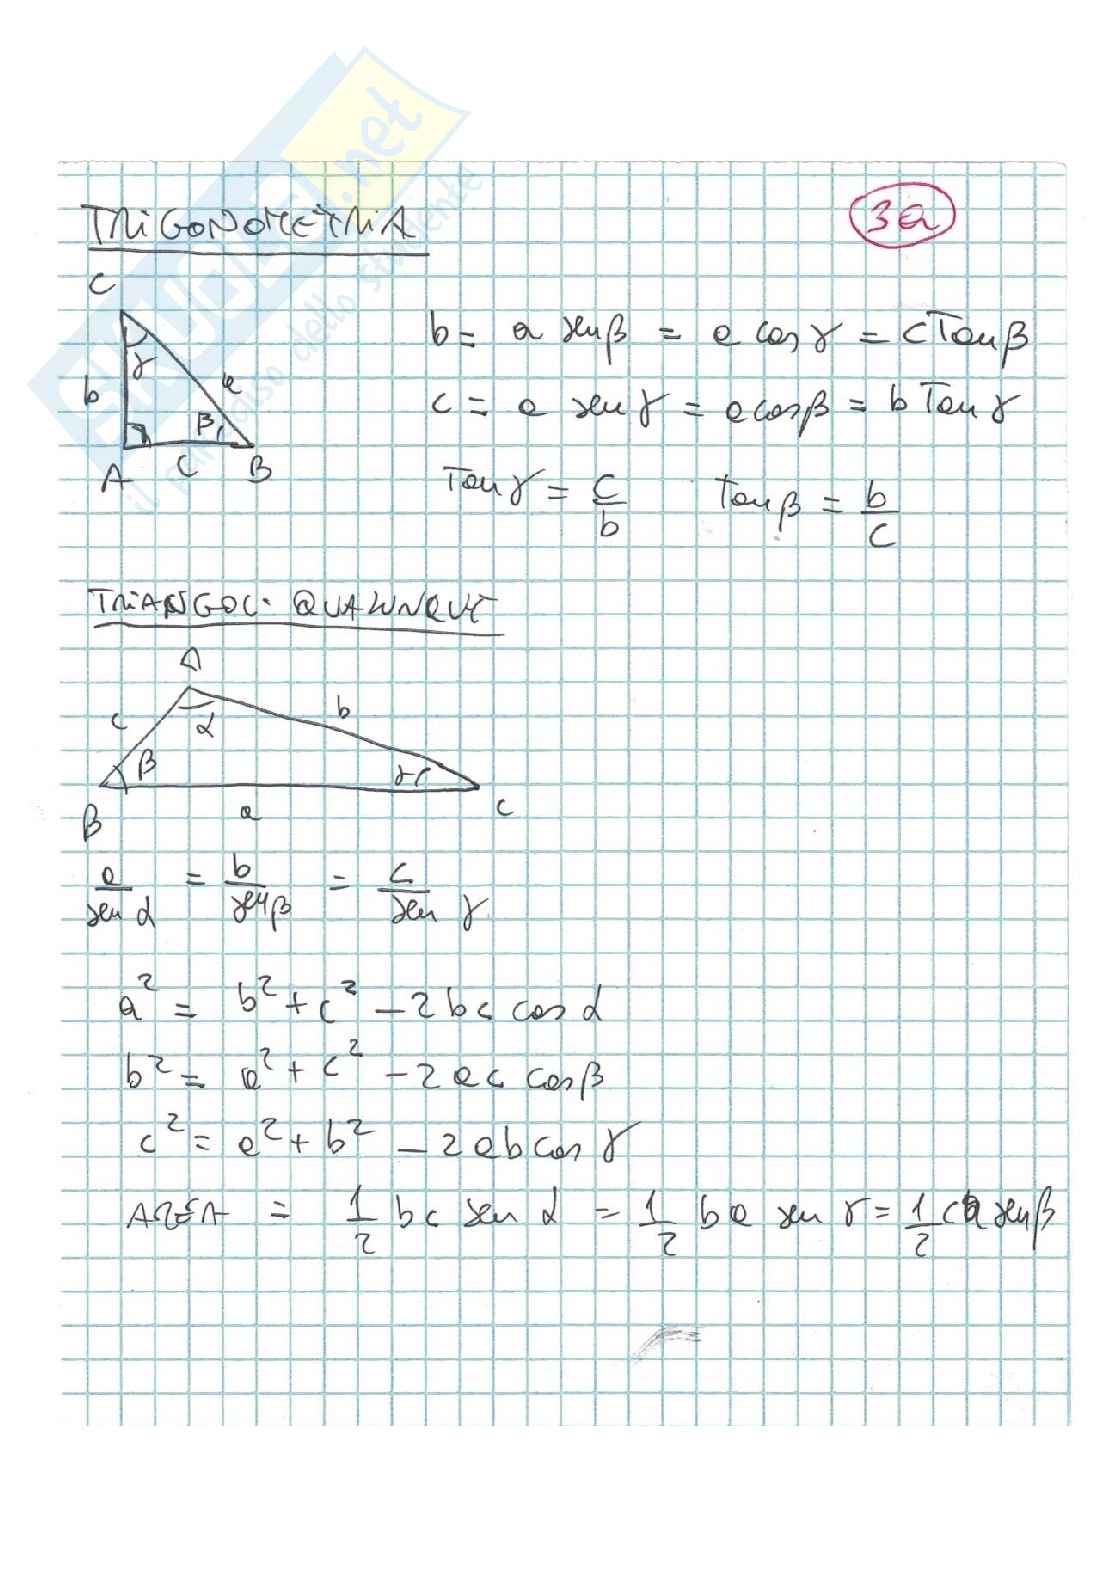 SKUOLA.net
il paradiso dello studente
TRiGONOMETRiA
3a
C
γ
b
a
β
A
c
B
b = a sen β = a cos γ = c Tan β
c = a sen γ = a cos β = b Tan γ
Tan γ = c/b Tan β = b/c
TRiANGOLi QUALUNQUE
A
c
b
α
β
γ
B
a
C
a/sen α = b/sen β = c/sen γ
a² = b² + c² - 2bc cos α
b² = a² + c² - 2ac cos β
c² = a² + b² - 2ab cos γ
AREA = 1/2 bc sen α = 1/2 ba sen γ = 1/2 ca sen β